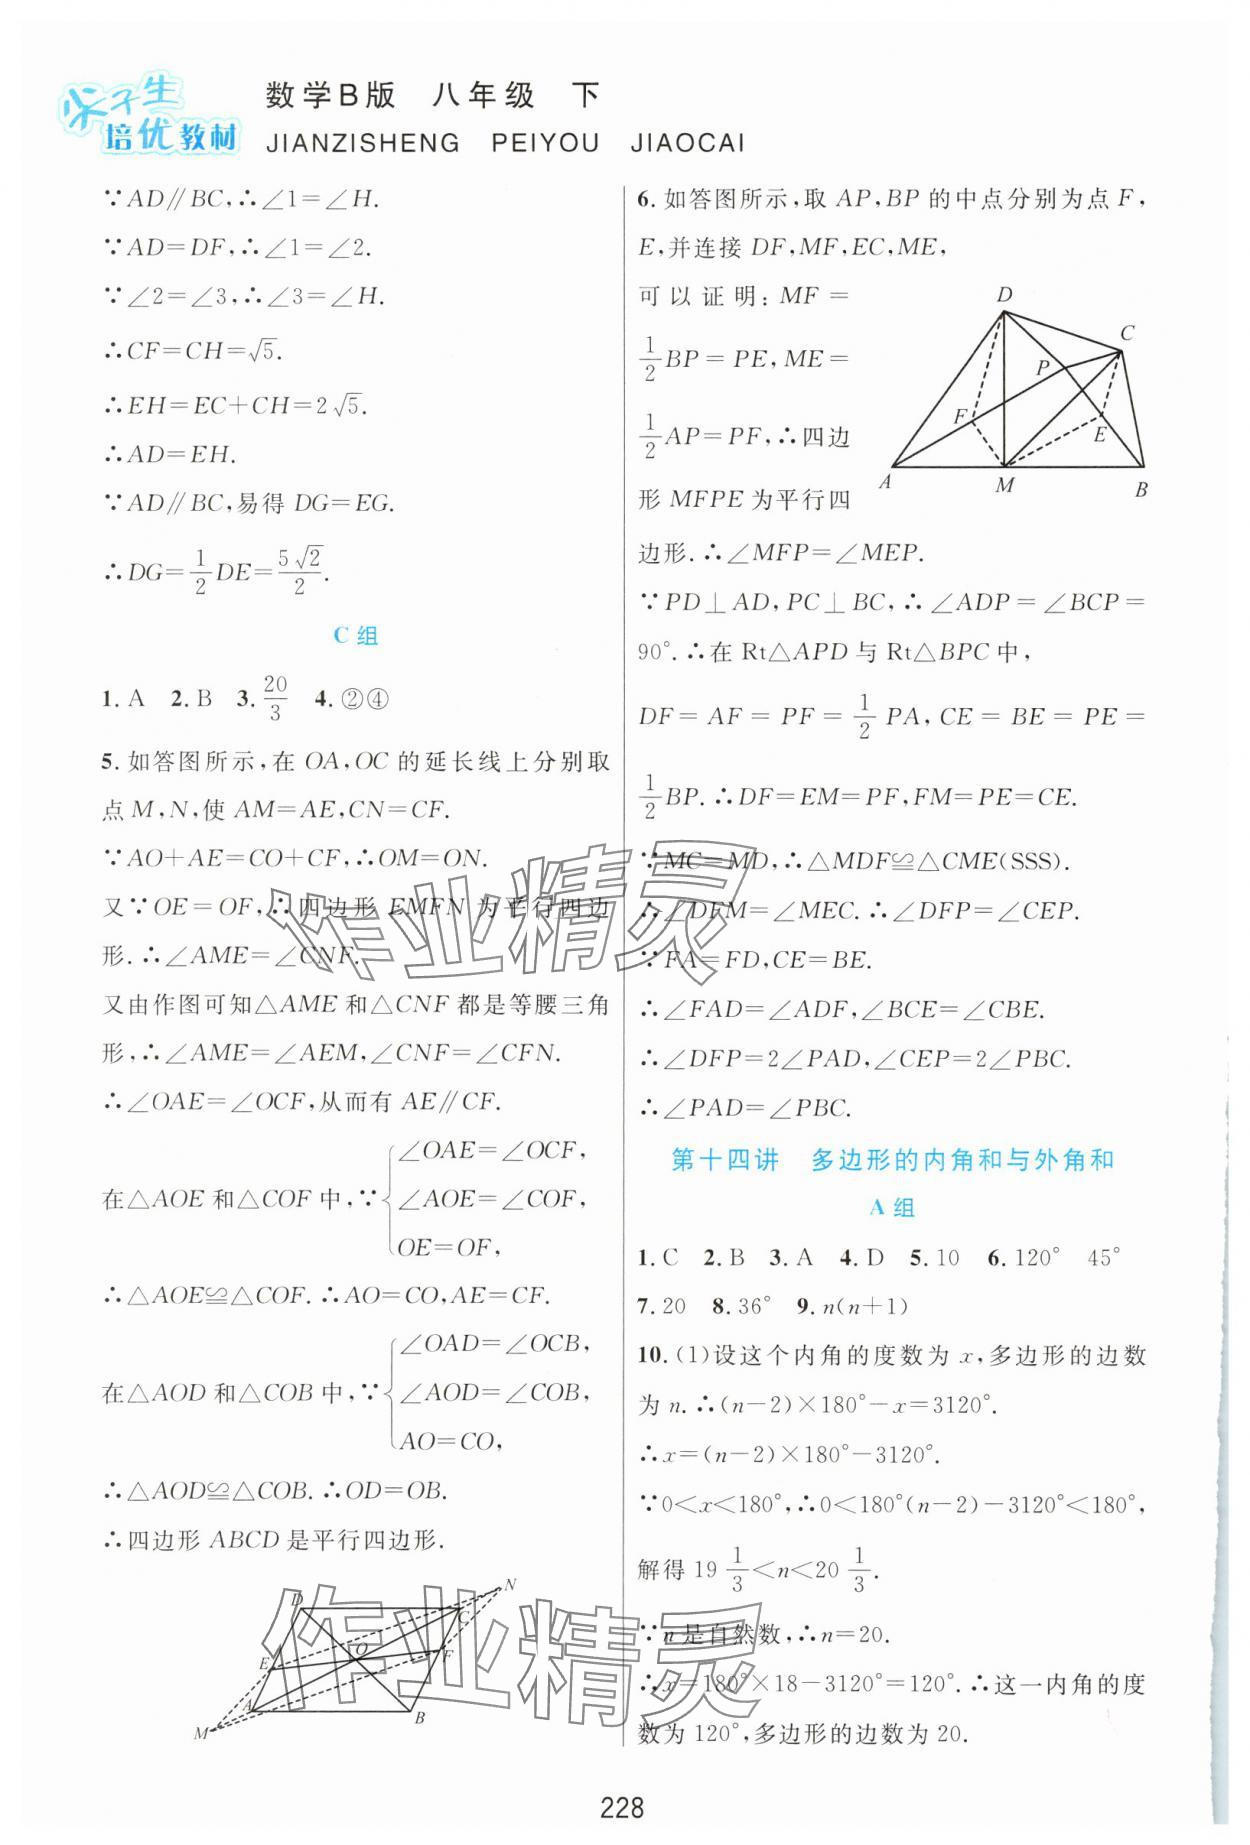 尖子生
培优教材
数学B版 八年级 下
JIANZISHENG PEIYOU JIAOCAI
∵AD∥BC,∴∠1=∠H.
∵AD=DF,∴∠1=∠2.
∵∠2=∠3,∴∠3=∠H.
∴CF=CH=√5.
∴EH=EC+CH=2√5.
∴AD=EH.
∵AD∥BC,易得 DG=EG.
∴DG=1/2 DE=5√2/2.
C组
1. A 2. B 3. 20/3 4. ②④
5. 如答图所示,在 OA,OC 的延长线上分别取
点 M,N,使 AM=AE,CN=CF.
∵AO+AE=CO+CF,∴OM=ON.
又∵OE=OF,∴四边形 EMFN 为平行四边
形.∴∠AME=∠CNF.
又由作图可知△AME 和△CNF 都是等腰三角
形,∴∠AME=∠AEM,∠CNF=∠CFN.
∴∠OAE=∠OCF,从而有 AE∥CF.
在△AOE 和△COF 中,∵{∠OAE=∠OCF,
∠AOE=∠COF,
OE=OF,
∴△AOE≌△COF.∴AO=CO,AE=CF.
在△AOD 和△COB 中,∵{∠OAD=∠OCB,
∠AOD=∠COB,
AO=CO,
∴△AOD≌△COB.∴OD=OB.
∴四边形 ABCD 是平行四边形.
N
D
C
O
E
F
A
B
M
6. 如答图所示,取 AP,BP 的中点分别为点 F,
E,并连接 DF,MF,EC,ME,
可以证明:MF=
1/2 BP=PE,ME=
1/2 AP=PF,∴四边
形 MFPE 为平行四
边形.∴∠MFP=∠MEP.
D
C
P
F
E
A
M
B
∵PD⊥AD,PC⊥BC,∴∠ADP=∠BCP=
90°.∴在 Rt△APD 与 Rt△BPC 中,
DF=AF=PF=1/2 PA,CE=BE=PE=
1/2 BP.∴DF=EM=PF,FM=PE=CE.
∵MC=MD,∴△MDF≌△CME(SSS).
∴∠DFM=∠MEC.∴∠DFP=∠CEP.
∵FA=FD,CE=BE.
∴∠FAD=∠ADF,∠BCE=∠CBE.
∴∠DFP=2∠PAD,∠CEP=2∠PBC.
∴∠PAD=∠PBC.
第十四讲 多边形的内角和与外角和
A组
1. C 2. B 3. A 4. D 5. 10 6. 120° 45°
7. 20 8. 36° 9. n(n+1)
10. (1)设这个内角的度数为 x,多边形的边数
为 n.∴(n-2)×180°-x=3120°.
∴x=(n-2)×180°-3120°.
∵0<x<180°,∴0<180°(n-2)-3120°<180°,
解得 19 1/3<n<20 1/3.
∵n 是自然数,∴n=20.
∴x=180°×18-3120°=120°.∴这一内角的度
数为 120°,多边形的边数为 20.
作业精灵
作业精灵
228